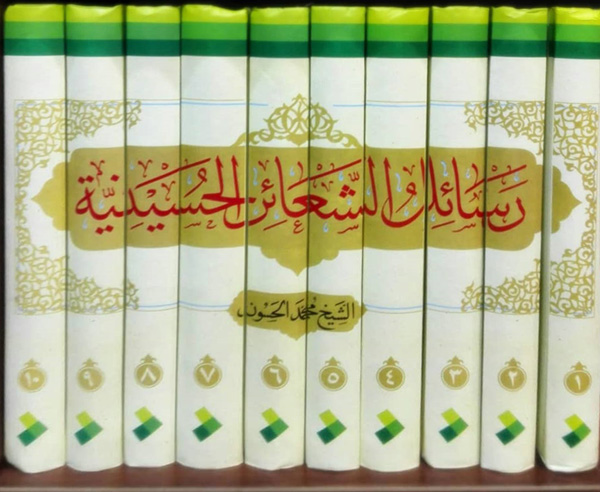 رسائل الشعائر الحسينية
الشيخ محمد الحسون
١ ٢ ٣ ٤ ٥ ٦ ٧ ٨ ٩ ١٠